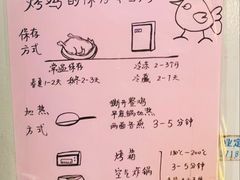 烤鸡的保存
保存
方式
常温保存
春夏1-2天 秋冬2-3天
冷冻 2-3个月
冷藏 2-7天
加热
方式
撕开整鸡
平底锅加热
两面各煎 3-5分钟
烤箱
180℃-200℃
3-5分钟
空气炸锅